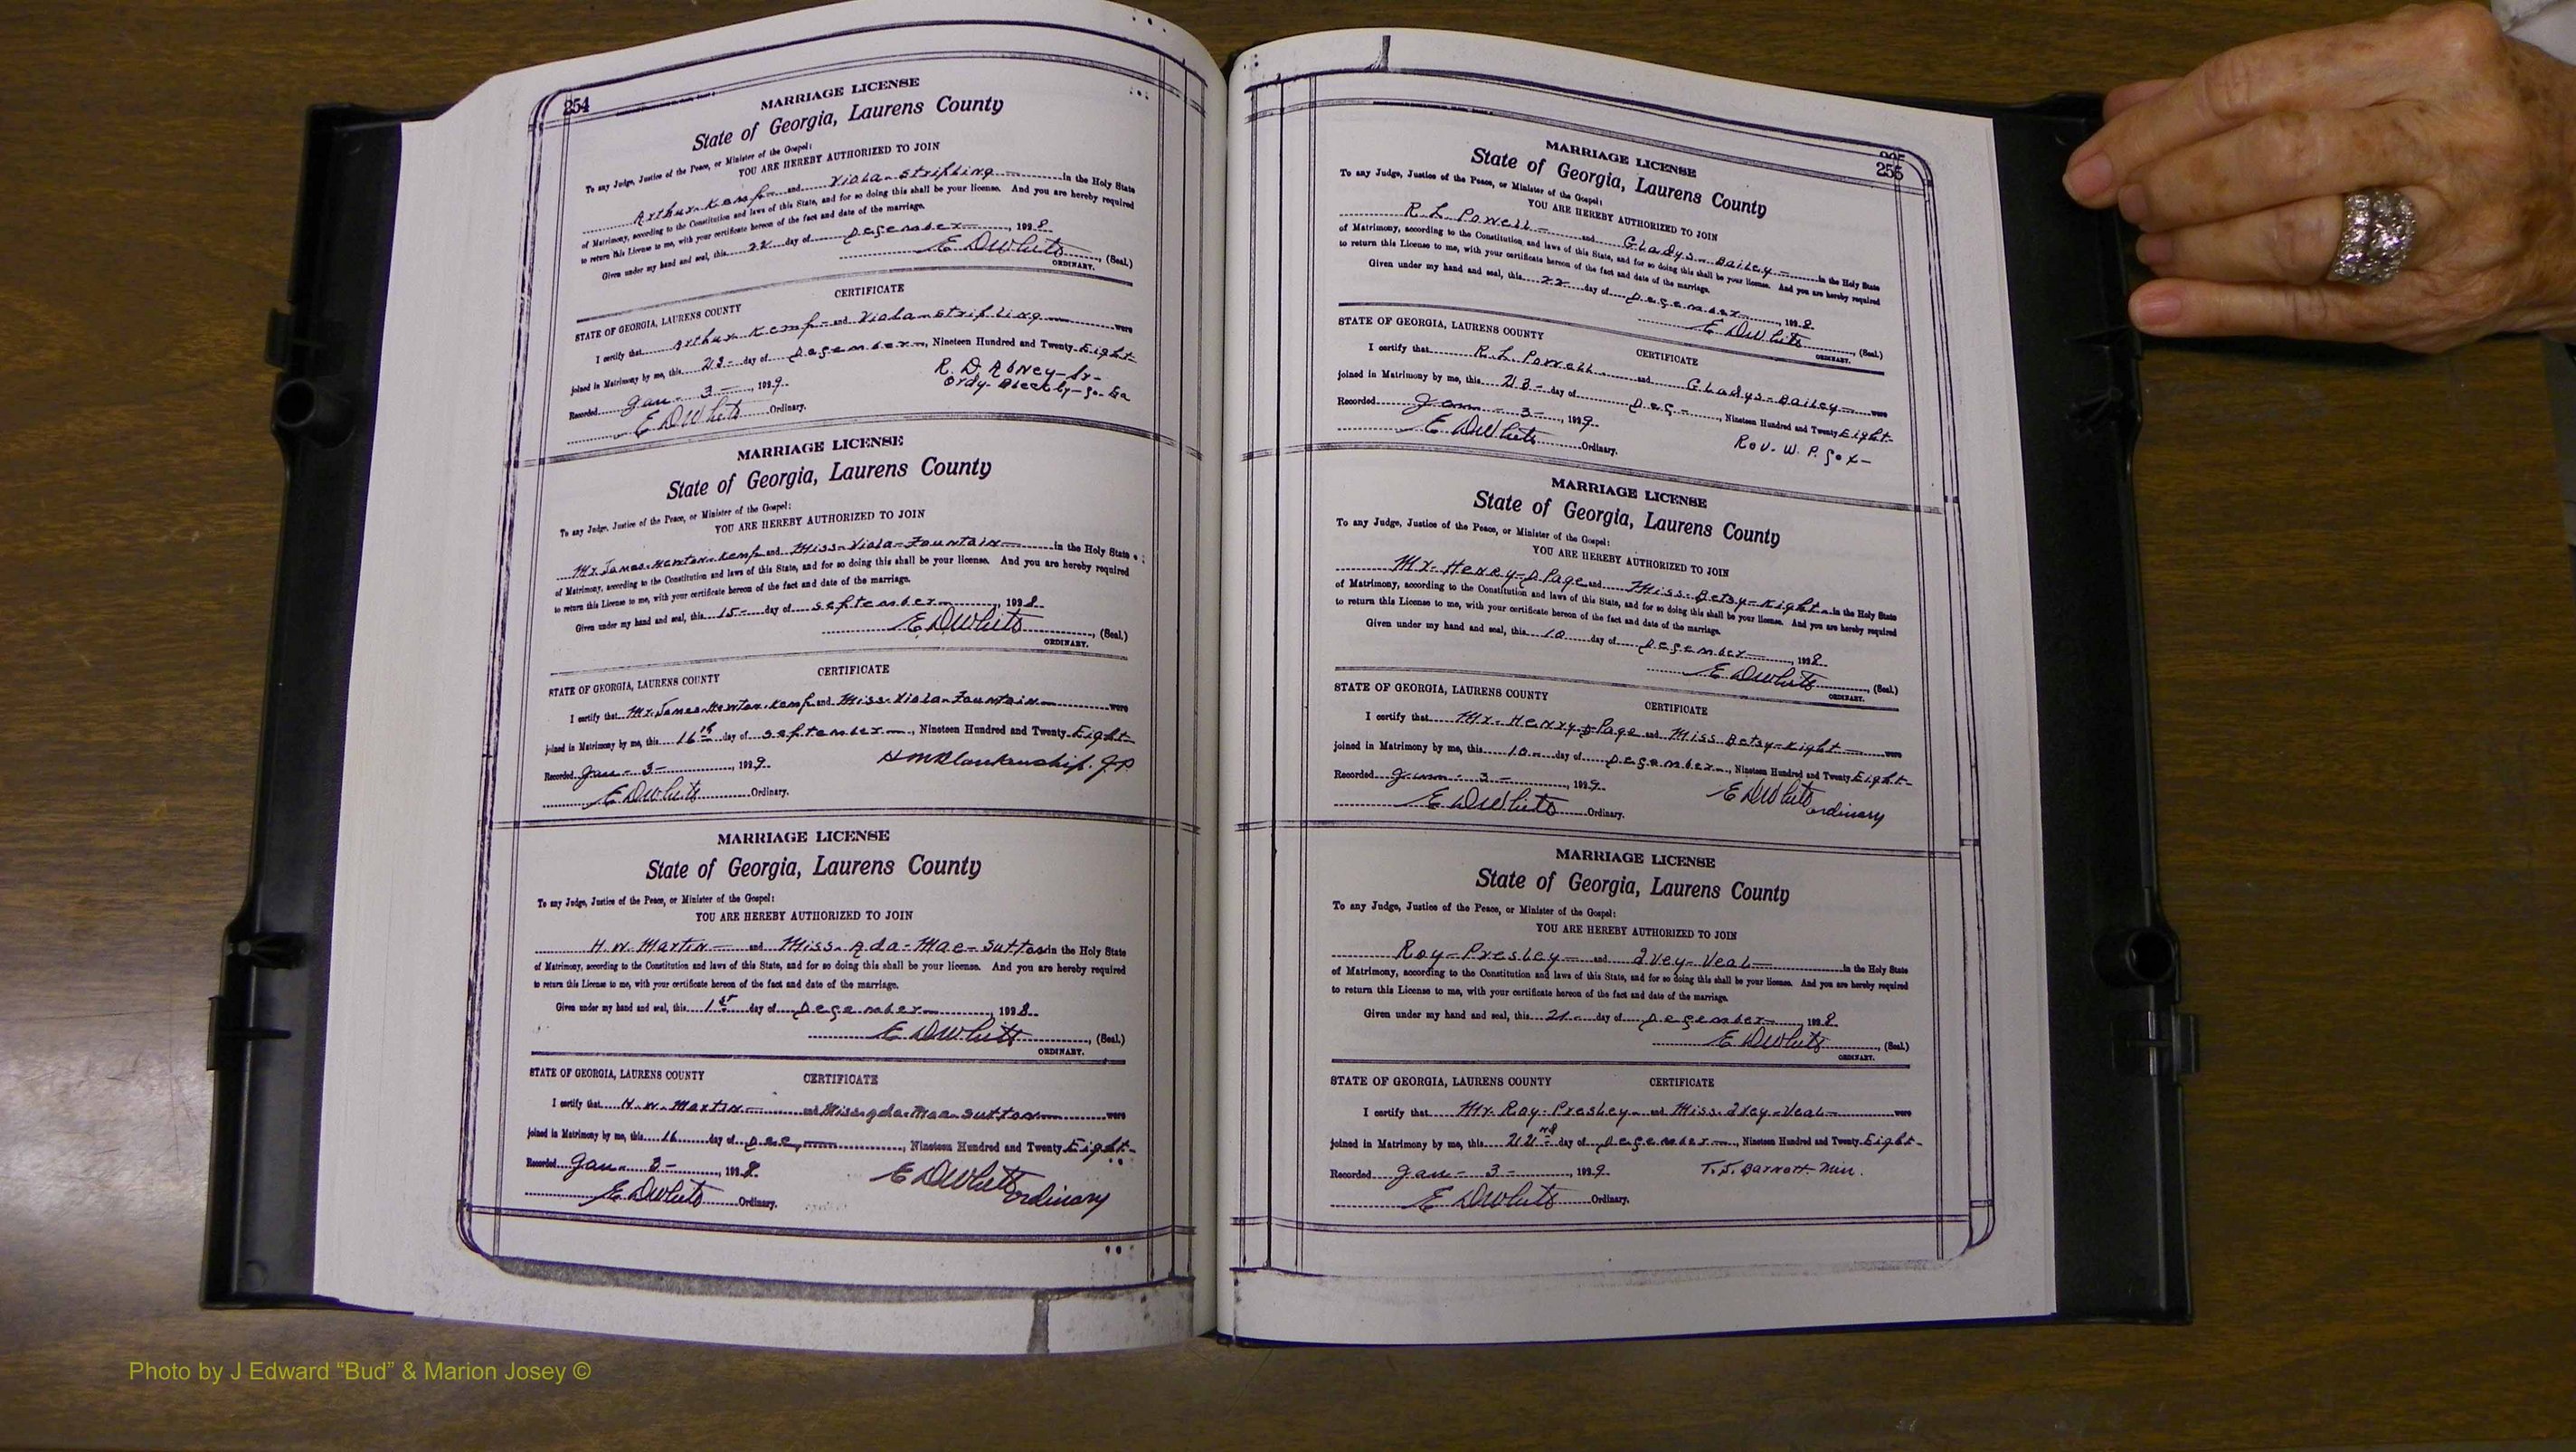 254
MARRIAGE LICENSE
State of Georgia, Laurens County
To any Judge, Justice of the Peace, or Minister of the Gospel:
YOU ARE HEREBY AUTHORIZED TO JOIN
Arthur Kemp and Viola Stripling in the Holy State
of Matrimony, according to the Constitution and laws of this State, and for so doing this shall be your license. And you are hereby required
to return this License to me, with your certificate hereon of the fact and date of the marriage.
Given under my hand and seal, this 22 day of December, 1928
E D White, (Seal.)
ORDINARY.
CERTIFICATE
STATE OF GEORGIA, LAURENS COUNTY
I certify that Arthur Kemp and Viola Stripling were
joined in Matrimony by me, this 23 day of December, Nineteen Hundred and Twenty Eight
Recorded Jan - 3 -, 1929. R. D. Abney - Sr -
Ordy. Bleckly - Co. Ga
E D White Ordinary.
MARRIAGE LICENSE
State of Georgia, Laurens County
To any Judge, Justice of the Peace, or Minister of the Gospel:
YOU ARE HEREBY AUTHORIZED TO JOIN
Mr. James Newton Kemp and Miss Viola Fountain in the Holy State
of Matrimony, according to the Constitution and laws of this State, and for so doing this shall be your license. And you are hereby required
to return this License to me, with your certificate hereon of the fact and date of the marriage.
Given under my hand and seal, this 15 day of September, 1928
E D White, (Seal.)
ORDINARY.
CERTIFICATE
STATE OF GEORGIA, LAURENS COUNTY
I certify that Mr. James Newton Kemp and Miss Viola Fountain were
joined in Matrimony by me, this 16th day of September, Nineteen Hundred and Twenty Eight
Recorded Jan - 3 -, 1929. H M Blankenship. J P
E D White Ordinary.
MARRIAGE LICENSE
State of Georgia, Laurens County
To any Judge, Justice of the Peace, or Minister of the Gospel:
YOU ARE HEREBY AUTHORIZED TO JOIN
H. W. Martin and Miss Ada - Mae - Sutton in the Holy State
of Matrimony, according to the Constitution and laws of this State, and for so doing this shall be your license. And you are hereby required
to return this License to me, with your certificate hereon of the fact and date of the marriage.
Given under my hand and seal, this 1st day of December, 1928
E D White, (Seal.)
ORDINARY.
STATE OF GEORGIA, LAURENS COUNTY CERTIFICATE
I certify that H. W. Martin and Miss Ada Mae Sutton were
joined in Matrimony by me, this 16 day of Dec, Nineteen Hundred and Twenty Eight
Recorded Jan - 3 -, 1928. E D White ordinary
E D White Ordinary.
255
MARRIAGE LICENSE
State of Georgia, Laurens County
To any Judge, Justice of the Peace, or Minister of the Gospel:
YOU ARE HEREBY AUTHORIZED TO JOIN
R. L. Powell and Gladys Bailey in the Holy State
of Matrimony, according to the Constitution and laws of this State, and for so doing this shall be your license. And you are hereby required
to return this License to me, with your certificate hereon of the fact and date of the marriage.
Given under my hand and seal, this 22 day of December, 1928
E D White, (Seal.)
ORDINARY.
STATE OF GEORGIA, LAURENS COUNTY CERTIFICATE
I certify that R. L. Powell and Gladys - Bailey were
joined in Matrimony by me, this 23 day of Dec -, Nineteen Hundred and Twenty Eight
Recorded Jan - 3 -, 1929. Rev. W. P. Cox
E D White Ordinary.
MARRIAGE LICENSE
State of Georgia, Laurens County
To any Judge, Justice of the Peace, or Minister of the Gospel:
YOU ARE HEREBY AUTHORIZED TO JOIN
Mr. Henry D Page and Miss Betsy Kight in the Holy State
of Matrimony, according to the Constitution and laws of this State, and for so doing this shall be your license. And you are hereby required
to return this License to me, with your certificate hereon of the fact and date of the marriage.
Given under my hand and seal, this 10 day of December, 1928
E D White, (Seal.)
ORDINARY.
STATE OF GEORGIA, LAURENS COUNTY CERTIFICATE
I certify that Mr. Henry D Page and Miss Betsy Kight were
joined in Matrimony by me, this 10 day of December, Nineteen Hundred and Twenty Eight
Recorded Jan - 3 -, 1929. E D White ordinary
E D White Ordinary.
MARRIAGE LICENSE
State of Georgia, Laurens County
To any Judge, Justice of the Peace, or Minister of the Gospel:
YOU ARE HEREBY AUTHORIZED TO JOIN
Roy - Presley and Ivey - Veal in the Holy State
of Matrimony, according to the Constitution and laws of this State, and for so doing this shall be your license. And you are hereby required
to return this License to me, with your certificate hereon of the fact and date of the marriage.
Given under my hand and seal, this 21 day of December, 1928
E D White, (Seal.)
ORDINARY.
STATE OF GEORGIA, LAURENS COUNTY CERTIFICATE
I certify that Mr. Roy Presley and Miss Ivey Veal were
joined in Matrimony by me, this 22nd day of December, Nineteen Hundred and Twenty Eight
Recorded Jan - 3 -, 1929. T. J. Barnett Min.
E D White Ordinary.
Photo by J Edward “Bud” & Marion Josey ©